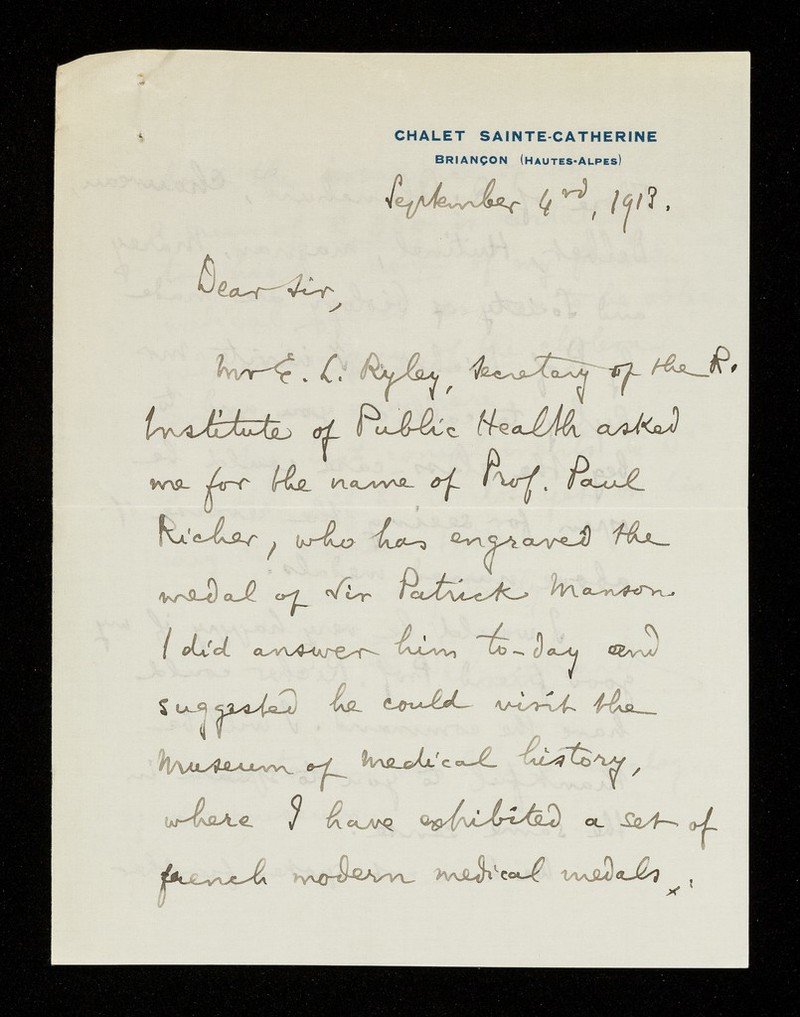 CHALET SAINTE-CATHERINE
BRIANÇON (HAUTES-ALPES)
September 4rd, 1913.
Dear Sir,
Mr E. L. Ryley, secretary of the R.
Institute of Public Health asked
me for the name of Prof. Paul
Richer, who has engraved the
medal of Sir Patrick Manson.
I did answer him to-day and
suggested he could visit the
Museum of medical history,
where I have exhibited a set of
french modern medical medals x: